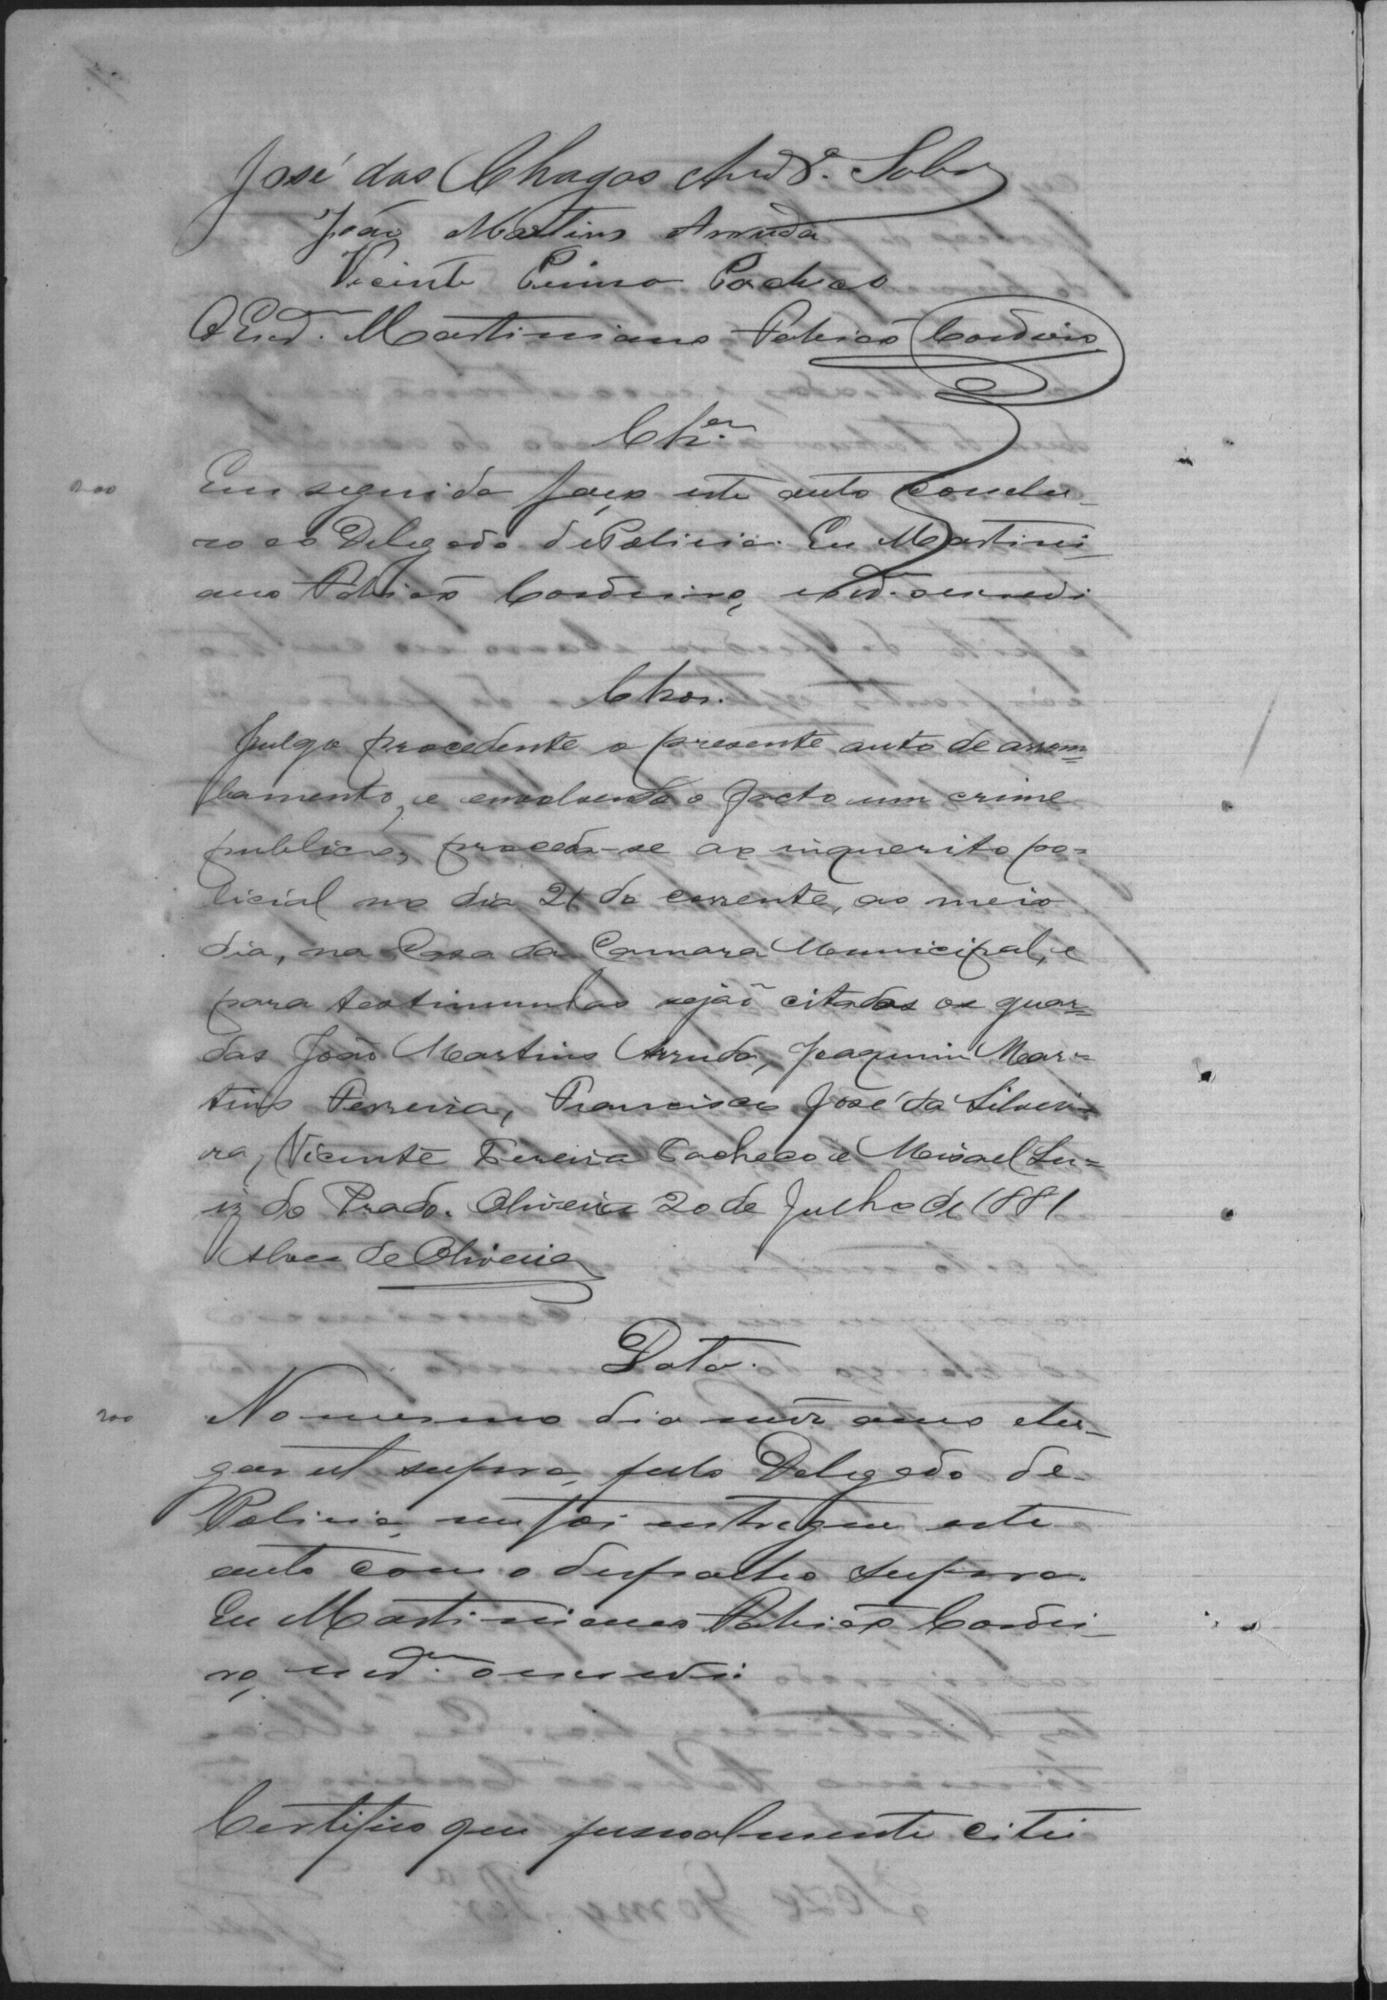 José das Chagas And.e Sobro
João Martins Arruda
Vicente Primo Pacheco
O Escr.m Martiniano Patricio Cordeiro
Ch.m
200
Em seguida faço este auto conclu-
so ao Delegado de Policia. Eu Martini-
ano Patricio Cordeiro, escr.m escrevi
Chos.
Julgo procedente o presente auto de arrom=
bamento, e envolvendo o facto um crime
publico, proceda-se ao inquerito po=
licial no dia 21 do corrente, ao meio
dia, na Casa da Camara Municipal, e
para testimunhas sejaõ citados os guar=
das João Martins Arruda, Joaquim Mar=
tins Ferreira, Francisco José da Silvei=
ra, Vicente Ferreira Pacheco e Misael Lu=
iz do Prado. Oliveira 20 de Julho de 1881
Alves de Oliveira
Data.
200
No mesmo dia mez anno e lu-
gar ut supra, pelo Delegado de
Policia me foi entregue este
auto com o despacho supra.
Eu Martiniano Patricio Cordei-
ro, escr.m o escrevi.
Certifico que pessoalmente citei